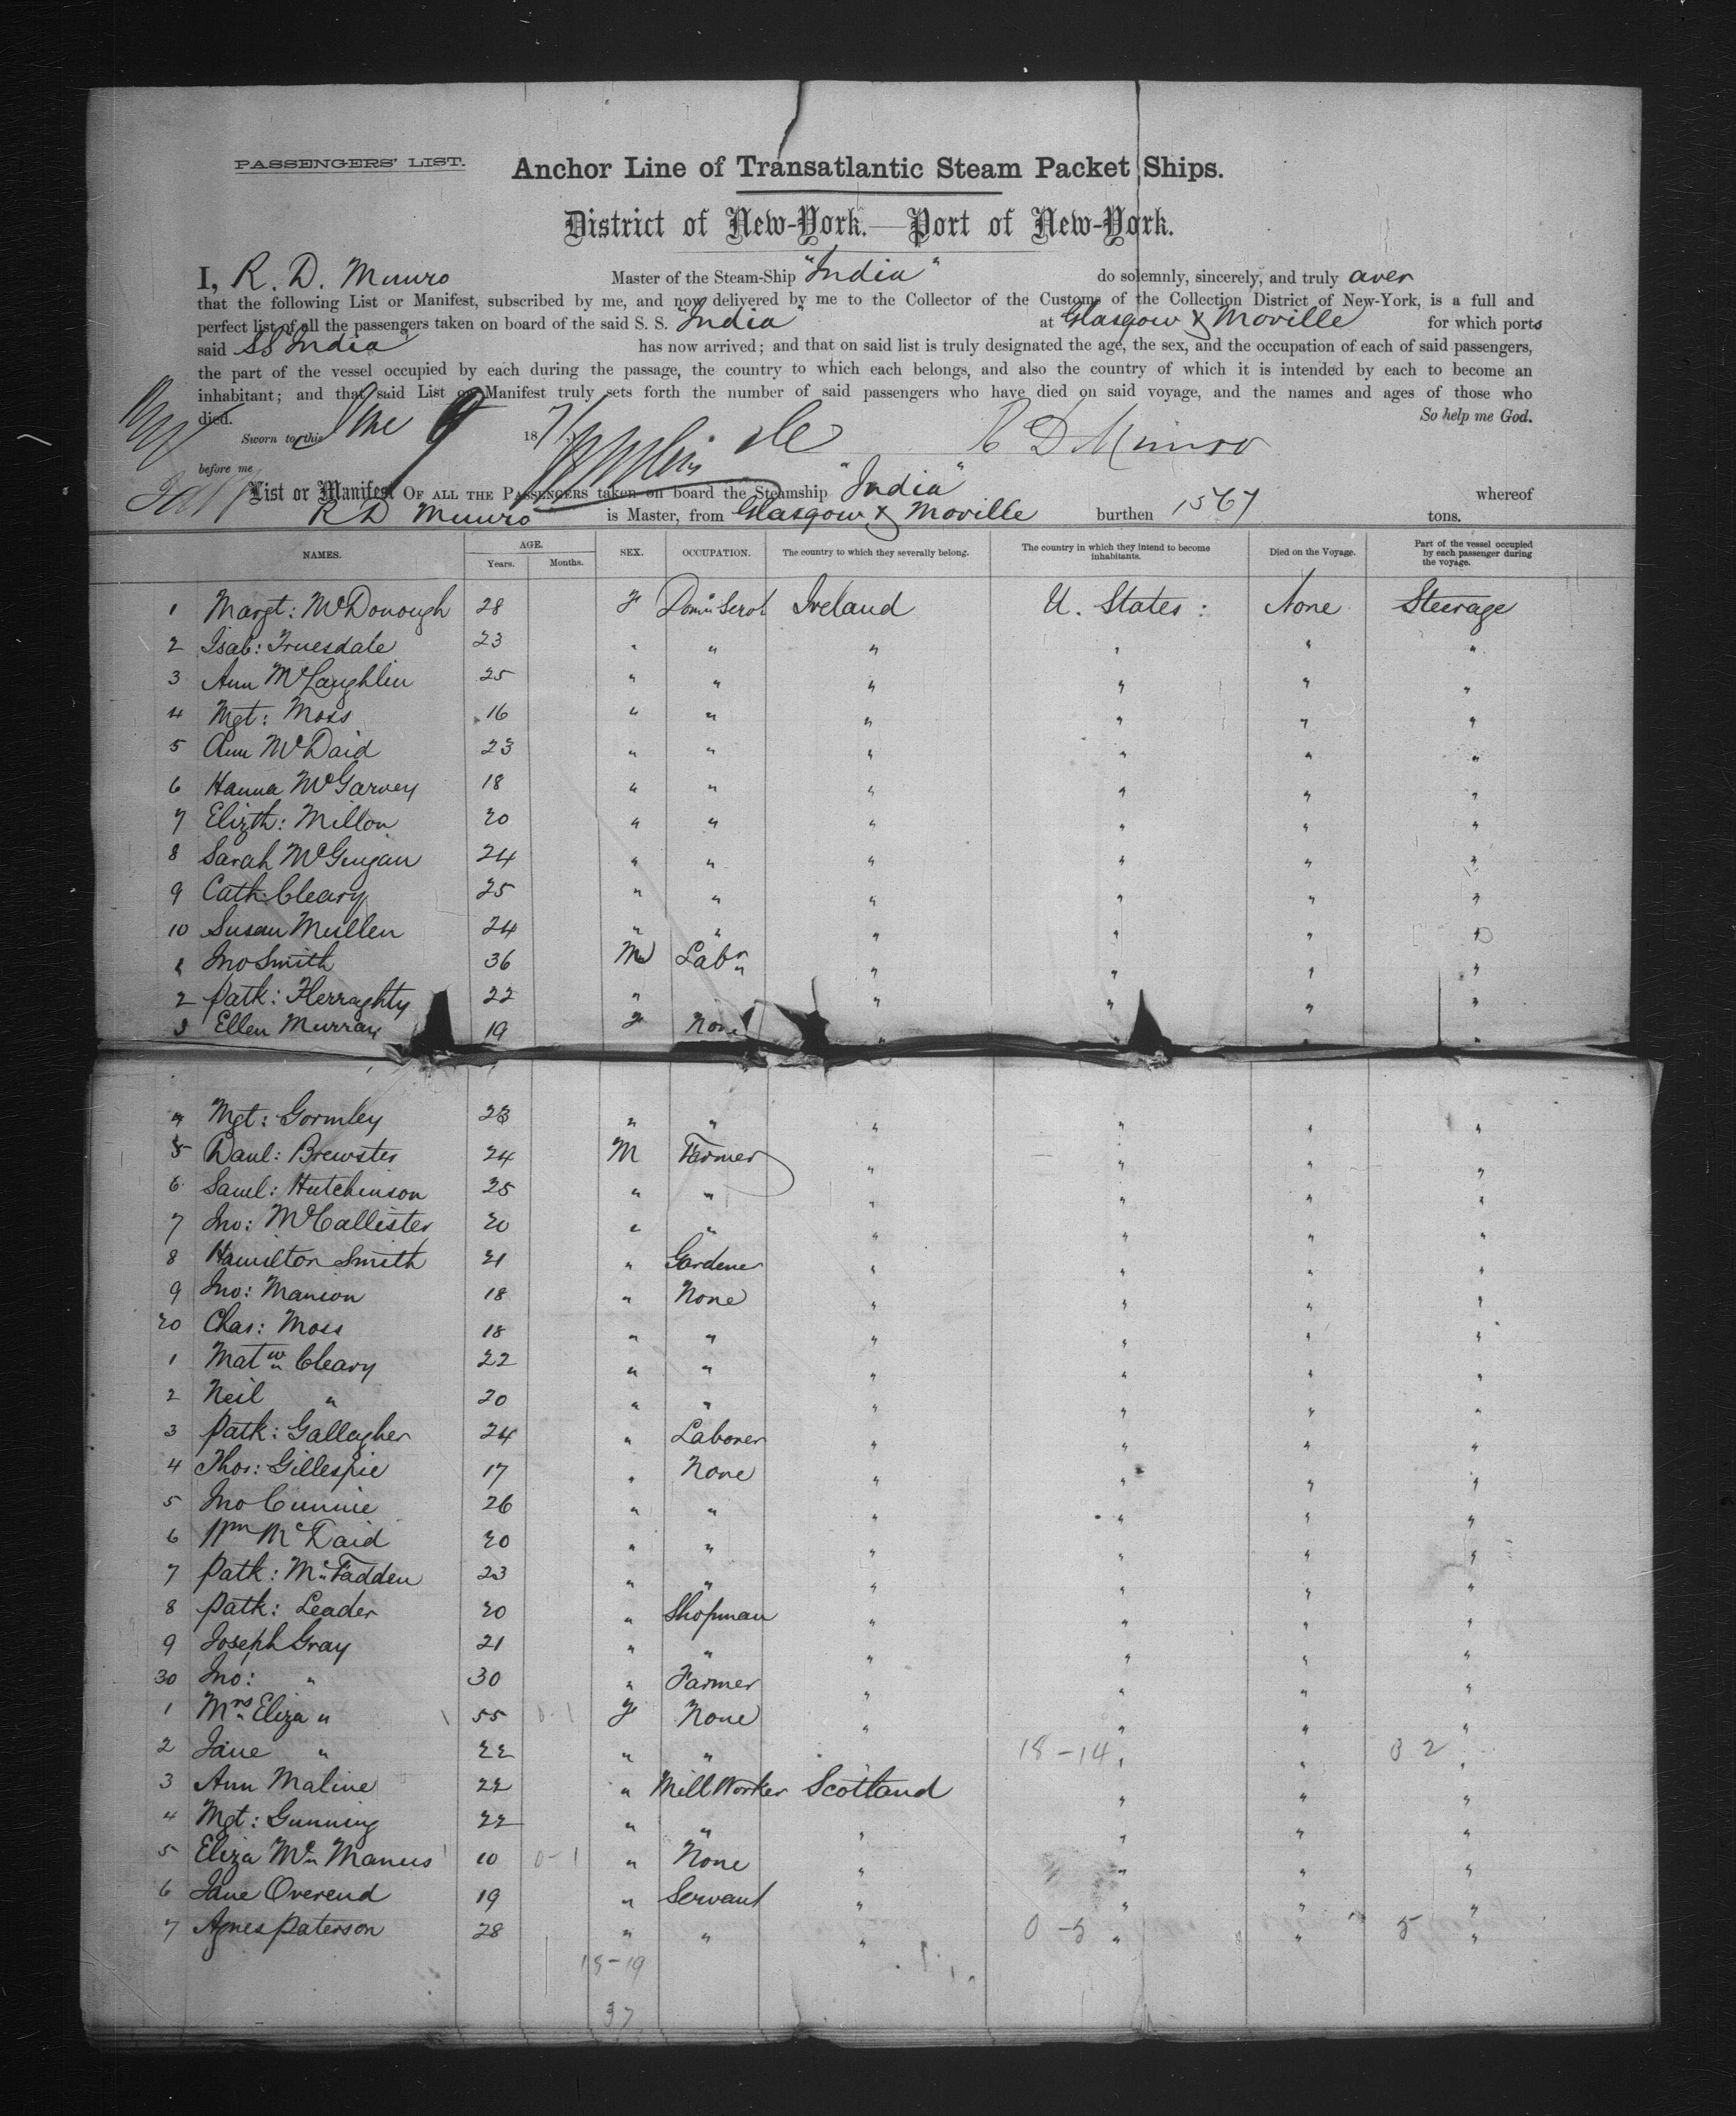 PASSENGERS' LIST. Anchor Line of Transatlantic Steam Packet Ships.
District of New-York.—Port of New-York.
I, R. D. Munro Master of the Steam-Ship "India" do solemnly, sincerely, and truly aver
that the following List or Manifest, subscribed by me, and now delivered by me to the Collector of the Customs of the Collection District of New-York, is a full and
perfect list of all the passengers taken on board of the said S. S. "India" at Glasgow & Moville for which ports
said SS India has now arrived; and that on said list is truly designated the age, the sex, and the occupation of each of said passengers,
the part of the vessel occupied by each during the passage, the country to which each belongs, and also the country of which it is intended by each to become an
inhabitant; and that said List or Manifest truly sets forth the number of said passengers who have died on said voyage, and the names and ages of those who
died. So help me God.
Sworn to this June 9 1871 R D Munro
before me
List or Manifest OF ALL THE PASSENGERS taken on board the Steamship "India" whereof
R D Munro is Master, from Glasgow & Moville burthen 1567 tons.
NAMES. AGE. Years. Months. SEX. OCCUPATION. The country to which they severally belong. The country in which they intend to become inhabitants. Died on the Voyage. Part of the vessel occupied by each passenger during the voyage.
1 Margt: McDonough 28 F Dom Servt Ireland U. States: None Steerage
2 Isab: Truesdale 23 " " " " " "
3 Ann McLaughlin 25 " " " " " "
4 Mgt: Moss 16 " " " " " "
5 Ann McDaid 23 " " " " " "
6 Hanna McGarvey 18 " " " " " "
7 Elizth: Millon 20 " " " " " "
8 Sarah McGuigan 24 " " " " " "
9 Cath: Cleary 25 " " " " " "
10 Susan Mullen 24 " " " " " "
1 Jno Smith 36 M Labr " " " "
2 Patk: Herraghty 22 " " " " " "
3 Ellen Murray 19 F None " " " "
4 Mgt: Gormley 23 " " " " " "
5 Danl: Brewster 24 M Farmer " " " "
6 Saml: Hutchinson 25 " " " " " "
7 Jno: McCallister 20 " " " " " "
8 Hamilton Smith 21 " Gardener " " " "
9 Jno: Manion 18 " None " " " "
20 Chas: Moss 18 " " " " " "
1 Matw Cleary 22 " " " " " "
2 Neil " 20 " " " " " "
3 Patk: Gallagher 24 " Laborer " " " "
4 Thos: Gillespie 17 " None " " " "
5 Jno Cunnie 26 " " " " " "
6 Wm McDaid 20 " " " " " "
7 Patk: McFadden 23 " " " " " "
8 Patk: Leader 20 " Shopman " " " "
9 Joseph Gray 21 " " " " " "
30 Jno: " 30 " Farmer " " " "
1 Mrs Eliza " 55 0-1 F None " " " "
2 Jane " 22 " " " 18-14 " " 32 "
3 Ann Maline 22 " Mill Worker Scotland " " "
4 Mgt: Gunning 22 " " " " " "
5 Eliza McManus 10 0-1 " None " " " "
6 Jane Overend 19 " Servant " " " "
7 Agnes Paterson 28 " " " 0-5 " " 5 "
18-19
37